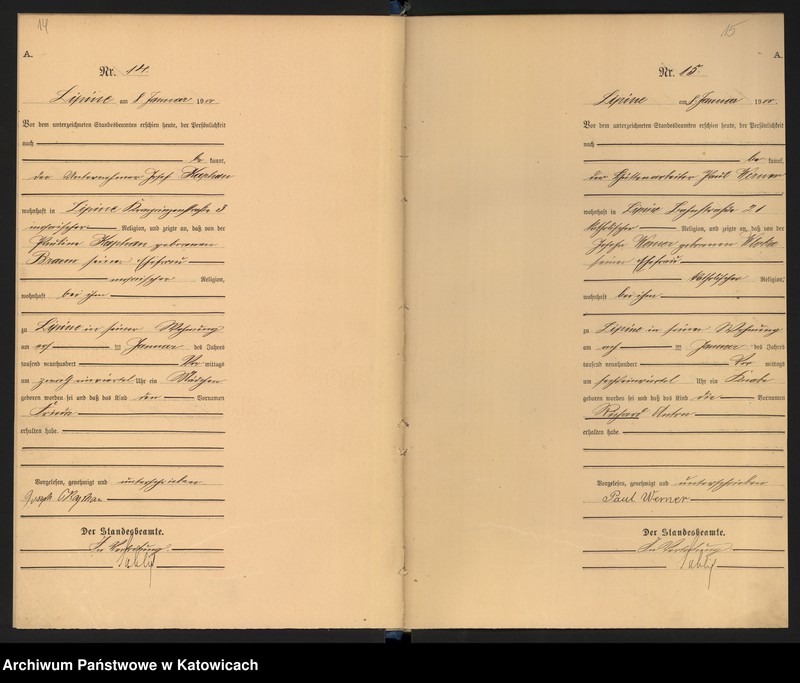 14
A.
Nr. 14.
Lipine am 8. Januar 1900
Vor dem unterzeichneten Standesbeamten erschien heute, der Persönlichkeit
nach
be kannt,
der Unternehmer Josef Kaphan
wohnhaft in Lipine 3
mosaischer Religion, und zeigte an, daß von der
Pauline Kaphan geborenen
Braun seiner Ehefrau
mosaischer Religion,
wohnhaft bei ihm
zu Lipine in seiner Wohnung
am Januar des Jahres
tausend neunhundert Vor mittags
um Uhr ein Mädchen
geboren worden sei und daß das Kind den Vornamen
erhalten habe.
Vorgelesen, genehmigt und unterschrieben
Der Standesbeamte.
In Vertretung.
15
A.
Nr. 15.
Lipine am 8. Januar 1900.
Vor dem unterzeichneten Standesbeamten erschien heute, der Persönlichkeit
nach
be kannt,
der Hüttenarbeiter Paul Werner
wohnhaft in Lipine Bahnstraße 21
katholischer Religion, und zeigte an, daß von der
Werner geborenen
seiner Ehefrau
katholischer Religion,
wohnhaft bei ihm
zu Lipine in seiner Wohnung
am Januar des Jahres
tausend neunhundert Vor mittags
um Uhr ein Knabe
geboren worden sei und daß das Kind die Vornamen
Richard Anton
erhalten habe.
Vorgelesen, genehmigt und unterschrieben
Paul Werner
Der Standesbeamte.
In Vertretung
Archiwum Państwowe w Katowicach